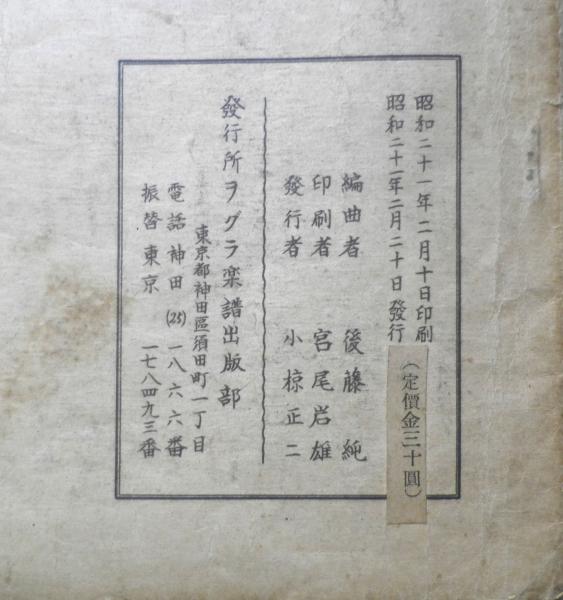 昭和二十一年二月十日印刷
昭和二十一年二月二十日發行
（定價金三十圓）
編曲者 後藤純
印刷者 宮尾岩雄
發行者 小椋正二
發行所 ヲグラ楽譜出版部
東京都神田區須田町一丁目
電話神田(25)一八六六番
振替東京 一七八四九三番